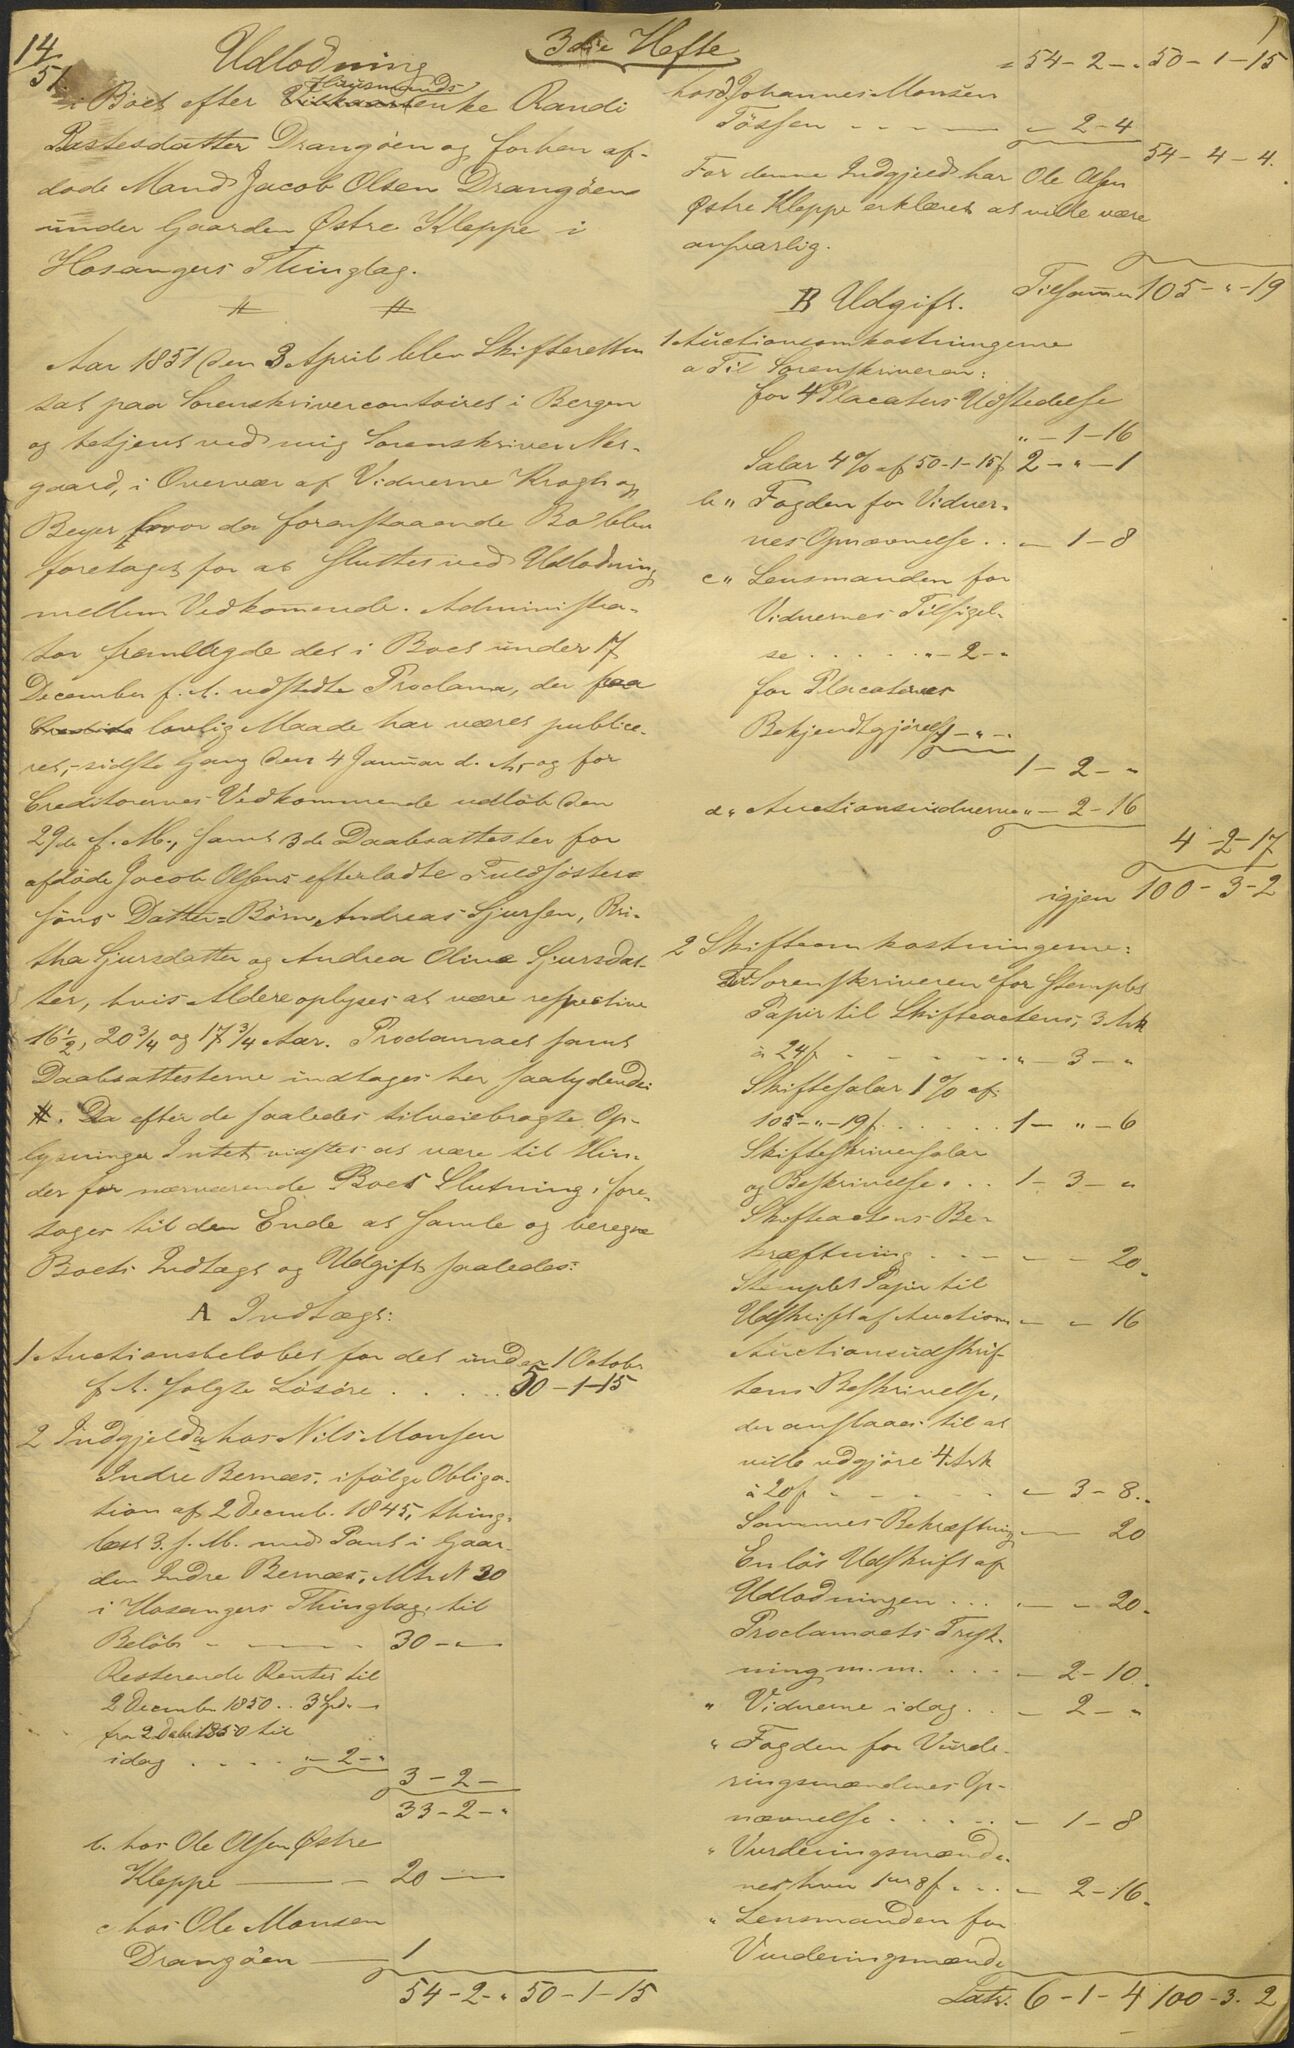 14/51.
3die Hefte
1
Udlodning
i Boet efter Huusmandsenke Randi
datter Drangöen og forhen af-
døde Mand Jacob Olsen Drangöen
under Gaarden Østre Kleppe i
Hosangers Thinglag.
Aar 1851 den 3 April blev Skifteretten
sat paa Sorenskrivercontoiret i Bergen
og betjent ved mig Sorenskriver Nør-
gaard, i Overvær af Vidnerne Krogh og
Beyer, hvor da foranstaaende Bo blev
foretaget for at sluttes ved Udlodning
mellem Vedkommende. Administra-
tor fremlagde det i Boet under 17
December f. A. udstedte Proclama, der paa
lovlig Maade har været publice-
ret, sidste Gang den 4 Januar d. A. og for
Creditorernes Vedkommende udløb den
29de f. M., samt 3de Daabsattester for
afdøde Jacob Olsens efterladte Fuldsøster
söns Datter-Börn Andreas Sjursen, Bri-
tha Sjursdatter og Andrea Olina Sjursdat-
ter, hvis Aldere oplyses at være respective
16 1/2, 20 3/4 og 17 3/4 Aar. Proclamaet samt
Daabsattesterne indtages her saalydende:
#. Da efter de saaledes tilveiebragte Op-
lysninger Intet vidstes at være til Hin-
der for nærværende Boes Slutning, fore-
tages til den Ende at samle og beregne
Boets Indtægt og Udgift saaledes:
A Indtægt:
1 Auctionsbeløbet for det under 1 Octobr
f. A. solgte Lösöre . . . . . 50-1-15
2 Indgjeld a, hos Nils Monsen
Indre Bernæs, ifølge Obliga-
tion af 2 Decemb. 1845, thing-
læst 3. f. M. med Pant i Gaar-
den Indre Bernæs, Mtr N 30
i Hosangers Thinglag, til
Beløb - - - 30-"-
Resterende Renter til
2 December 1850 . . 3 Spd "-
fra 2 Decbr 1850 til
idag . . . . "-2-"
3-2-
33-2-"
b. hos Ole Olsen Østre
Kleppe - - 20 -
c hos Ole Monsen
Drangöen - 1
54-2-" 50-1-15
" 54-2-" 50-1-15
hos d, Johannes Monsen
Tössen - - - - - 2-4
54-4-4.
For denne Indgjeld har Ole Olsen
Østre Kleppe erklæret at ville være
ansvarlig.
Tilsammen 105-"-19
B Udgift.
1 Auctionsomkostningerne
a Til Sorenskriveren:
for 4 Placaters Udstedelse
"-1-16
Salar 4% af 50-1-15 f 2-"-1
b " Fogden for Vidner-
nes Opnævnelse . . - 1-8
c " Lensmanden for
Vidnernes Tilsigel-
se . . . . . "-2-"
for Placaternes
Bekjendtgjørelse 1-"-"
1-2-"
d " Auctionsvidnerne "-2-16
4-2-17
igjen 100-3-2
2 Skifteomkostningerne:
Til Sorenskriveren for stemplet
Papir til Skifteactens, 3 Ark
à 24 f - - - - "-3-"
Skiftesalar 1% af
105-"-19 f. . . . . . 1-"-6
Skifteskriversalar
og Beskrivelse . . . 1-3-"
Skifteactens Be-
kræftning . - - - - 20
Stemplet Papir til
Udskrift af Auctions - - 16
Auctionsudskrif-
tens Beskrivelse,
der anslaaes til at
ville udgjøre 4 Ark
à 20 f - - - - - 3-8.
Sammes Bekræftning - 20
En løs Udskrift af
Udlodningen . . . - - 20
Proclamaets Tryk-
ning m. m. . . . - 2-10
" Vidnerne idag . . - 2-"
" Fogden for Vurde-
ringsmændenes Op-
nævnelse . . . . . - 1-8
" Vurderingsmænde-
nes hver f . . . - 2-16
" Lensmanden for
Vurderingsmænde
Lats. 6-1-4 100-3-2